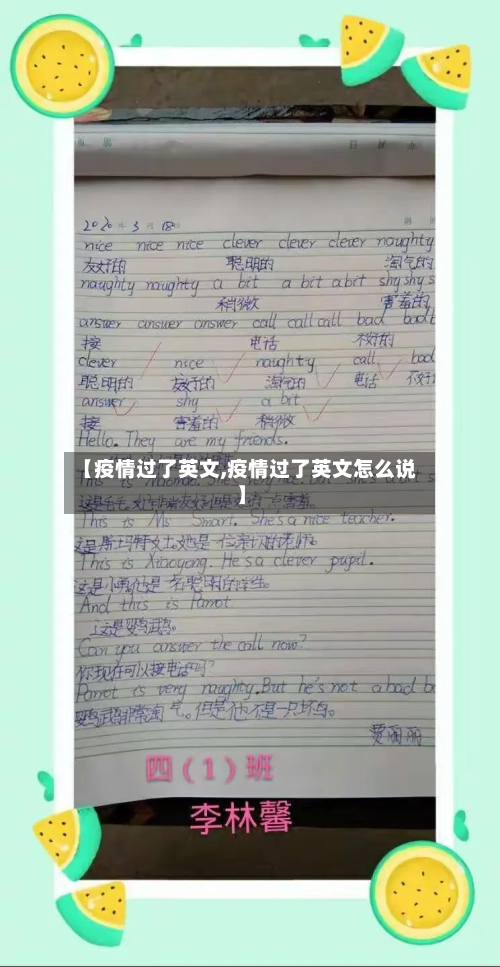 2020年3月18日
nice nice nice clever clever clever naughty
友好的 聪明的 淘气的
naughty naughty a bit a bit a bit shy shy s
稍微 害羞的
answer answer answer call call call bad bad b
接 电话 不好的
clever nice naughty call bad
聪明的 友好的 淘气的 电话 不好
answer shy a bit
接 害羞的 稍微
Hello. They are my friends.
【疫情过了英文,疫情过了英文怎么说
】
This is
This is Ms Smart. She's a nice teacher.
This is Xiaoyong. He's a clever pupil.
And this is Parrot
这是鹦鹉。
Can you answer the call now?
你现在可以接电话吗?
Parrot is very naughty. But he's not a bad b
鹦鹉非常淘气。但是他不是一只坏鸟。
四（1）班
李林馨